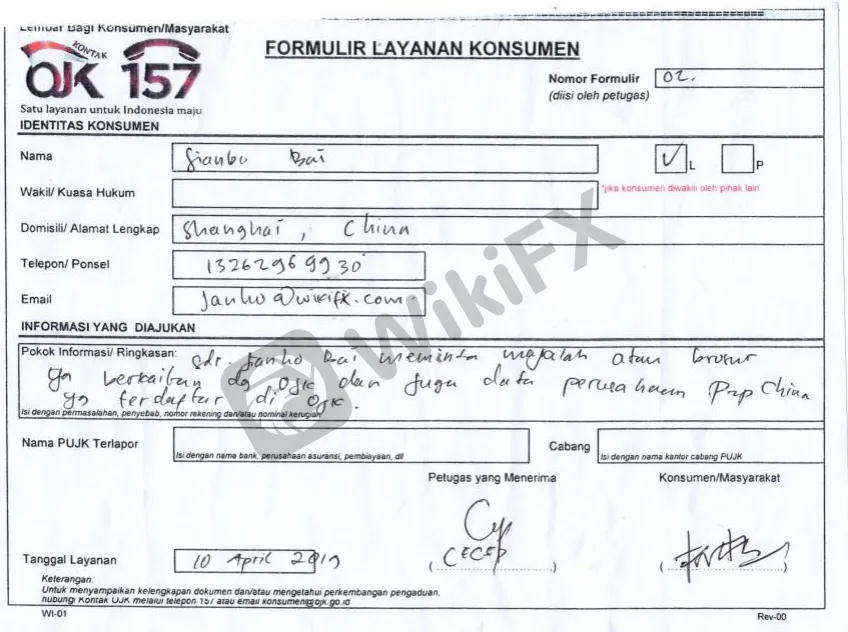 Lembar Bagi Konsumen/Masyarakat
KONTAK
OJK 157
Satu layanan untuk Indonesia maju
FORMULIR LAYANAN KONSUMEN
Nomor Formulir 02.
(diisi oleh petugas)
IDENTITAS KONSUMEN
Nama Jianbo Bai ✓ L P
Wakil/ Kuasa Hukum *jika konsumen diwakili oleh pihak lain
Domisili/ Alamat Lengkap Shanghai, China
Telepon/ Ponsel 13262969930
Email Janbo@wikifx.com
INFORMASI YANG DIAJUKAN
Pokok Informasi/ Ringkasan: Sdr. Janbo Bai meminta majalah atau brosur
yg berkaitan dg OJK dan juga data perusahaan China
yg terdaftar di OJK.
Isi dengan permasalahan, penyebab, nomor rekening dan/atau nominal kerugian
Nama PUJK Terlapor Cabang
Isi dengan nama bank, perusahaan asuransi, pembiayaan, dll Isi dengan nama kantor cabang PUJK
Petugas yang Menerima Konsumen/Masyarakat
CECEP
Tanggal Layanan 10 April 2019
Keterangan:
Untuk menyampaikan kelengkapan dokumen dan/atau mengetahui perkembangan pengaduan,
hubungi Kontak OJK melalui telepon 157 atau email konsumen@ojk.go.id
WI-01 Rev-00
WikiFX